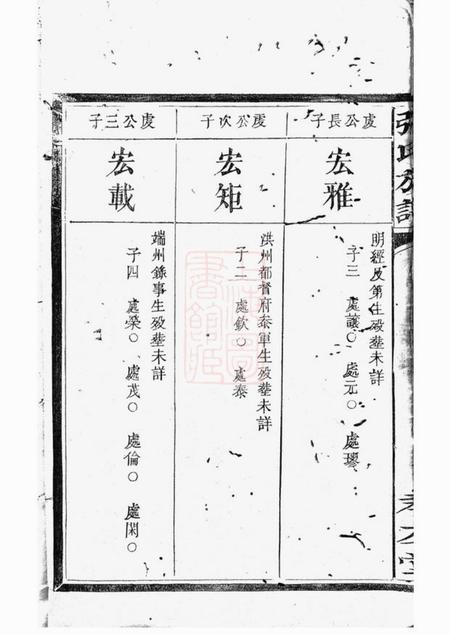 張氏族譜
虔公長子
宏雅
明經及第生歿塟未詳
子三　處讓○　處元○　處璆
虔公次子
宏矩
洪州都督府叅軍生歿塟未詳
子二　處欽○　處泰
虔公三子
宏載
端州錄事生歿塟未詳
子四　處榮○　處茂○　處倫○　處閑○